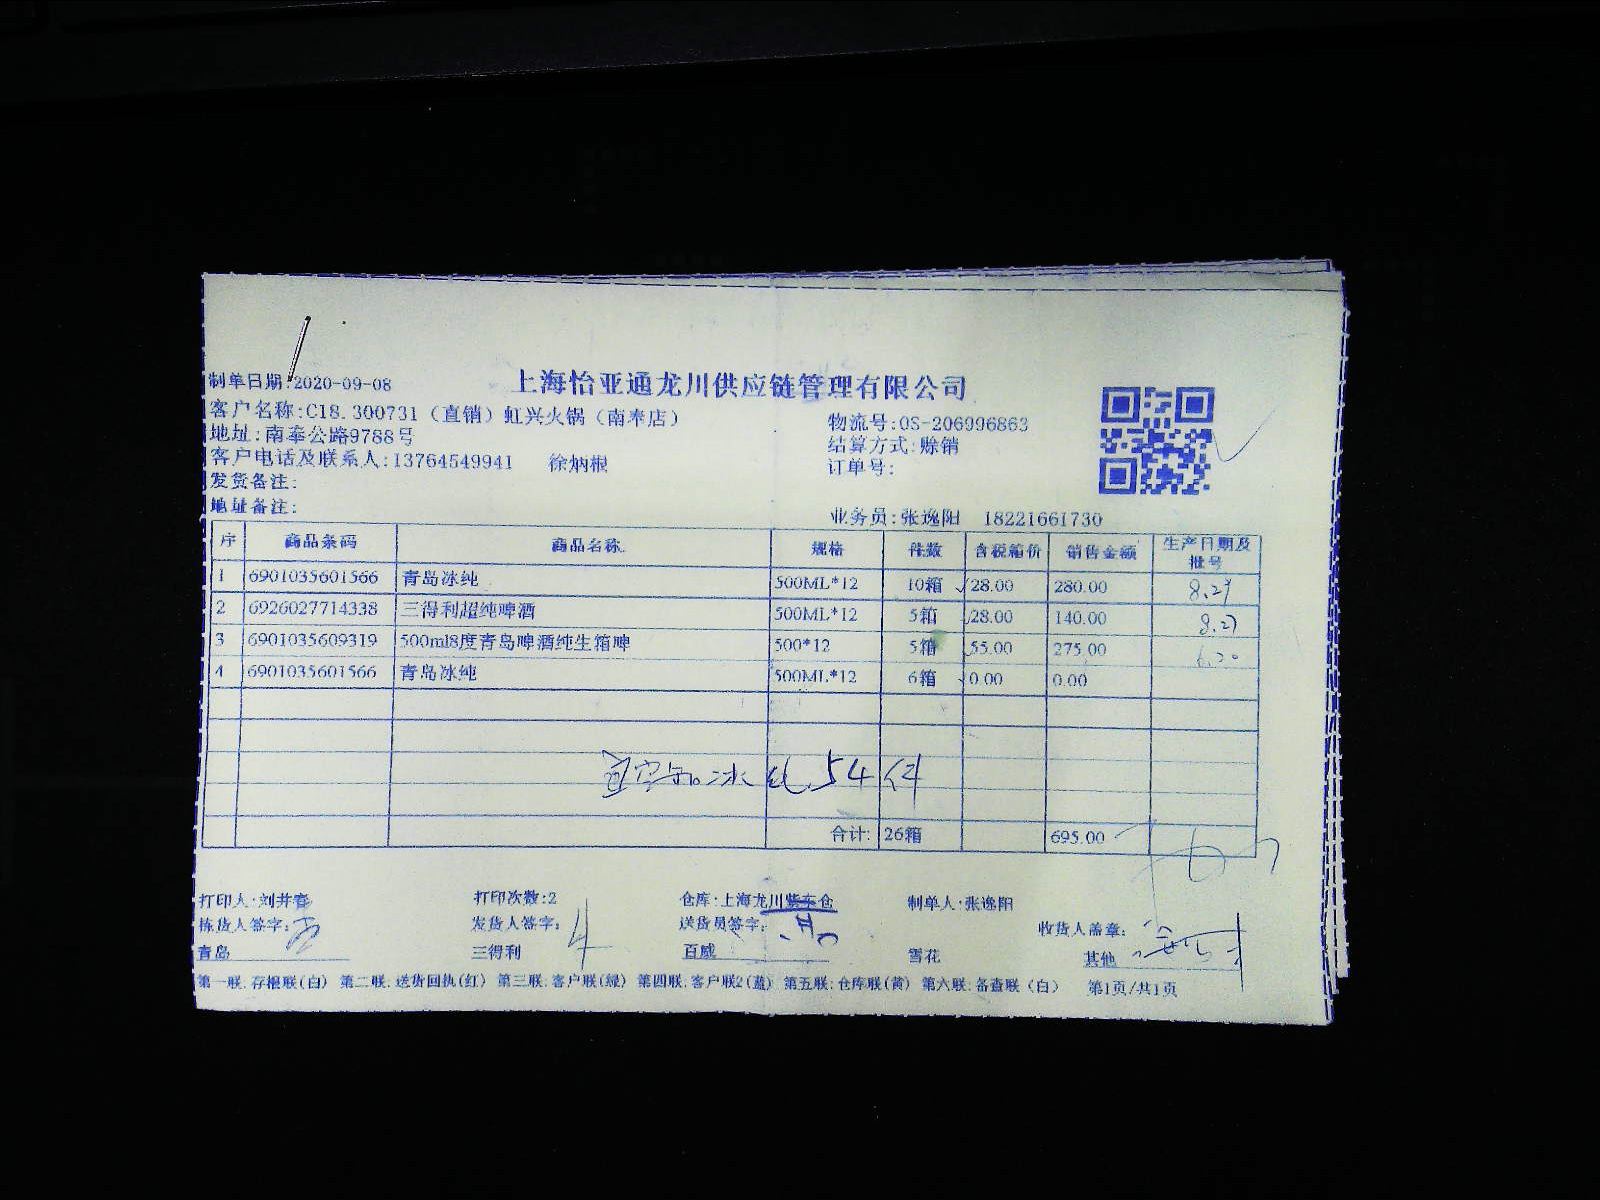 上海怡亚通龙川供应链管理有限公司
制单日期:2020-09-08
客户名称:C18.300731（直销）虹兴火锅（南奉店）
物流号:OS-206996863
地址:南奉公路9788号
结算方式:赊销
客户电话及联系人:13764549941 徐炳根
订单号:
发货备注:
地址备注:
业务员:张逸阳 18221661730
序 商品条码 商品名称 规格 件数 含税箱价 销售金额 生产日期及批号
1 6901035601566 青岛冰纯 500ML*12 10箱 28.00 280.00 8.29
2 6926027714338 三得利超纯啤酒 500ML*12 5箱 28.00 140.00 8.27
3 6901035609319 500ml8度青岛啤酒纯生箱啤 500*12 5箱 55.00 275.00 6.20
4 6901035601566 青岛冰纯 500ML*12 6箱 0.00 0.00
冰 54
合计: 26箱 695.00
打印人:刘井春 打印次数:2 仓库:上海龙川柴车仓 制单人:张逸阳
拣货人签字: 发货人签字: 送货员签字: 收货人盖章:
青岛 三得利 百威 雪花 其他
第一联:存根联(白) 第二联:送货回执(红) 第三联:客户联(绿) 第四联:客户联2(蓝) 第五联:仓库联(黄) 第六联:备查联（白） 第1页/共1页